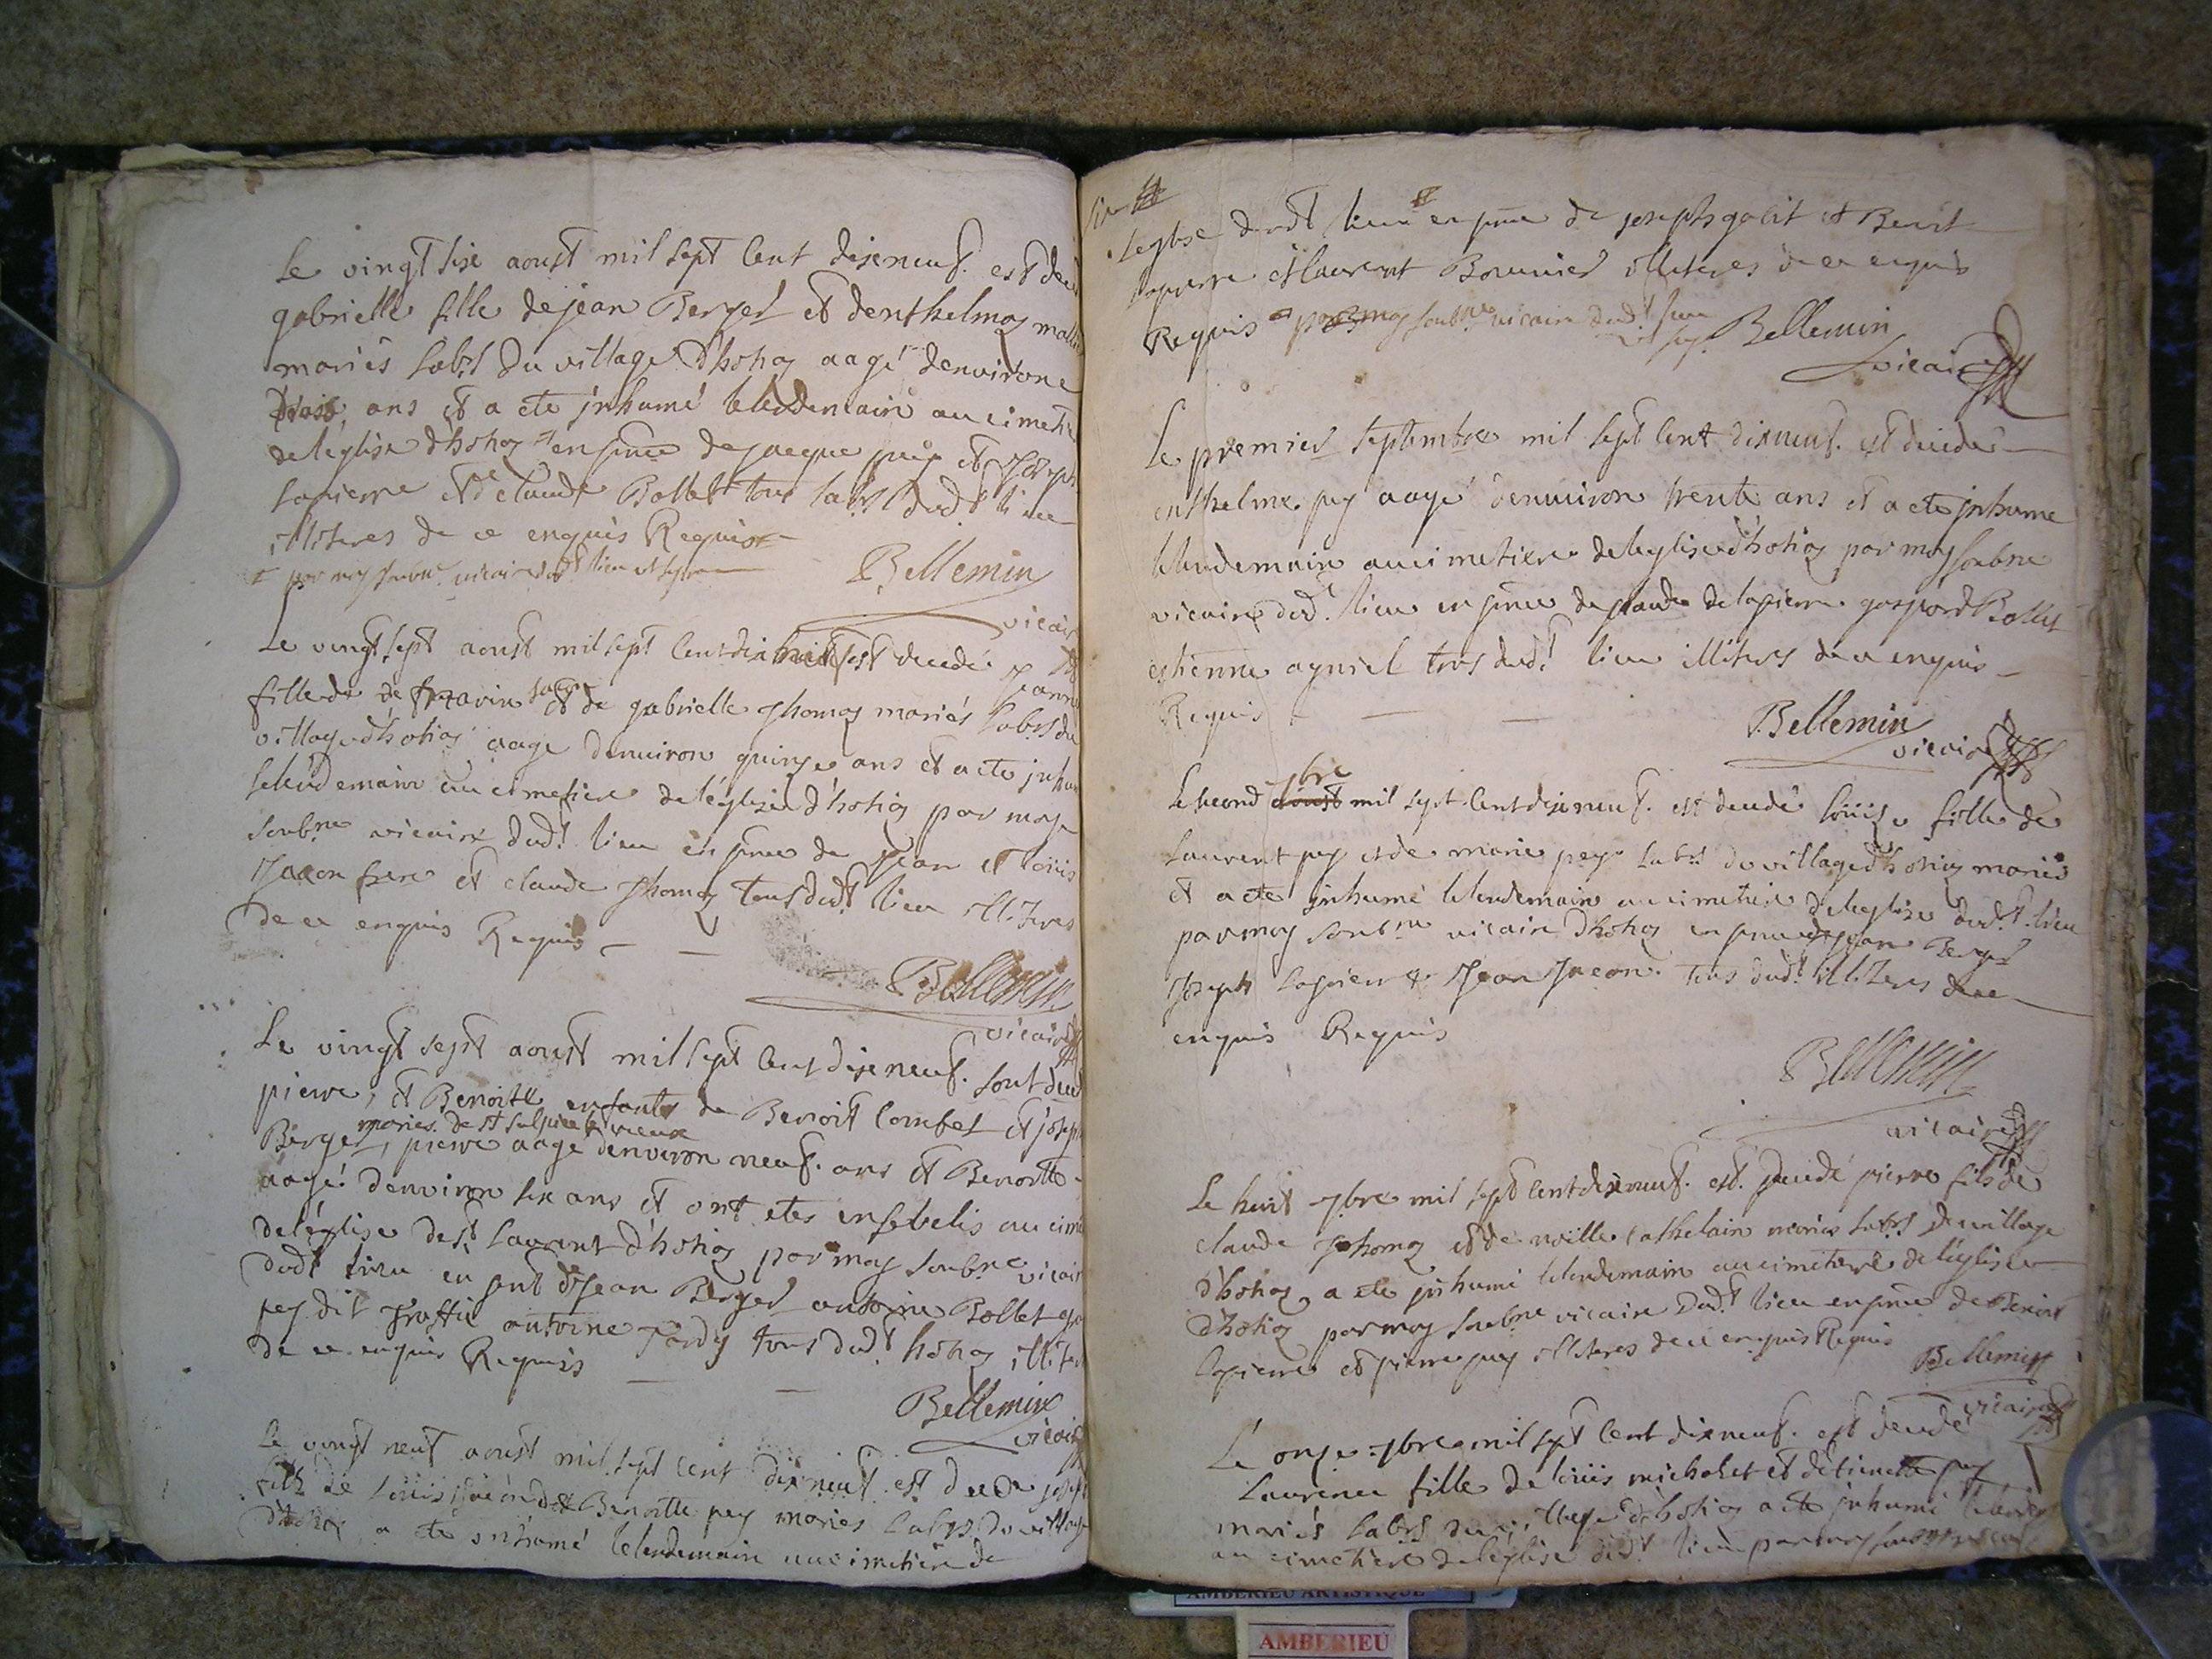 Le vingt sixe aoust mil sept cent dixeneuf. est deced
gabrielle fille de jean Berger et denthelmoz
mariés labrs du village d'hotioz aagé denvirone
ans et a ete jnhumé le lendemain au cimetie
de leglise d'hotioz en pnce de jacque puy et joseph
lapierre et de claude Bollet tous labrs dudt lieu
illiteres de ce enquis Requis
par moy soubne vicaire dudt lieu
Bellemin
vicaire
Le vingt sept aoust mil sept cent dix est decedé jeanne
fille de et de gabrielle Thomoz mariés labrs du
village d'hotioz aage denviron quinze ans et a ete jnhu
le lendemain au cimetiere de léglise d'hotioz par moy
soubne vicaire dudt lieu en pnce de Jean et loüis
Jacon frere et claude Thomoz tous dudt lieu illiteres
de ce enquis Requis
Bellemin
vicaire
Le vingt sept aoust mil sept cent dixe neuf. sont deced
pierre, et Benoitte enfants de Benoit Combet et joseph
mariés de st sulpice le vieux
Berger, pierre aagé denviron neuf. ans et Benoitte
aagé denviron six ans et ont etes ensebelis au cime
de léglise de st laurent d'hotioz par moy soubne vicair
dudt lieu en pnt de Jean Berger antoine Bollet
pey dit antoine Tardy tous dudt hotioz illite
de ce enquis Requis
Bellemin
vicair
Le vingt neuf aoust mil sept cent dix neuf est decede joseph
filz de loüis jacon et Benoitte pey mariés labrs du village
d'hotioz a ete jnhumé le lendemain au cimetiere de
leglise dudt lieu en pnce de joseph galit et Benoit
lapierre et laurent Bonnier illiteres de ce enquis
Requis par moy soubne vicaire dudt lieu
Bellemin
vicaire
Le premier septembre mil sept cent dixneuf. est decede
enthelme pey aagé denviron trente ans et a ete jnhume
le lendemain au cimetiere de leglise d'hotioz par moy soubne
vicaire dudt lieu en pnce de claude de lapierre gaspard Bollet
estienne ayniel tous dudt lieu illiteres de ce enquis
Requis
Bellemin
vicaire
Le second 7bre mil sept cent dixeneuf. est decedé loüise fille de
laurent pey et de marie pey labrs du village d'hotioz mariés
et a ete jnhumé le lendemain au cimetiere de leglise dudt lieu
par moy soubne vicaire d'hotioz en pnce de jean Berger
Joseph lapierre et Jean Jacon tous dudt illiteres de ce
enquis Requis
Bellemin
vicaire
Le huit 7bre mil sept cent dixneuf. est decedé pierre fils de
claude Thomoz et de mariés labrs du village
d'hotioz, a ete jnhumé le lendemain au cimetiere de léglise
d'hotioz par moy soubne vicaire dudt lieu en pnce de Benoit
lapierre et pierre puy illiteres de ce enquis Requis
Bellemin
vicaire
Le onze 7bre mil sept cent dixneuf. est decedé
Laurence fille de loüis micholet et
mariés labrs du village d'hotioz a ete jnhumé
au cimetiere de léglise dudt lieu par moy
AMBERIEU ARTISTIQUE
AMBERIEU